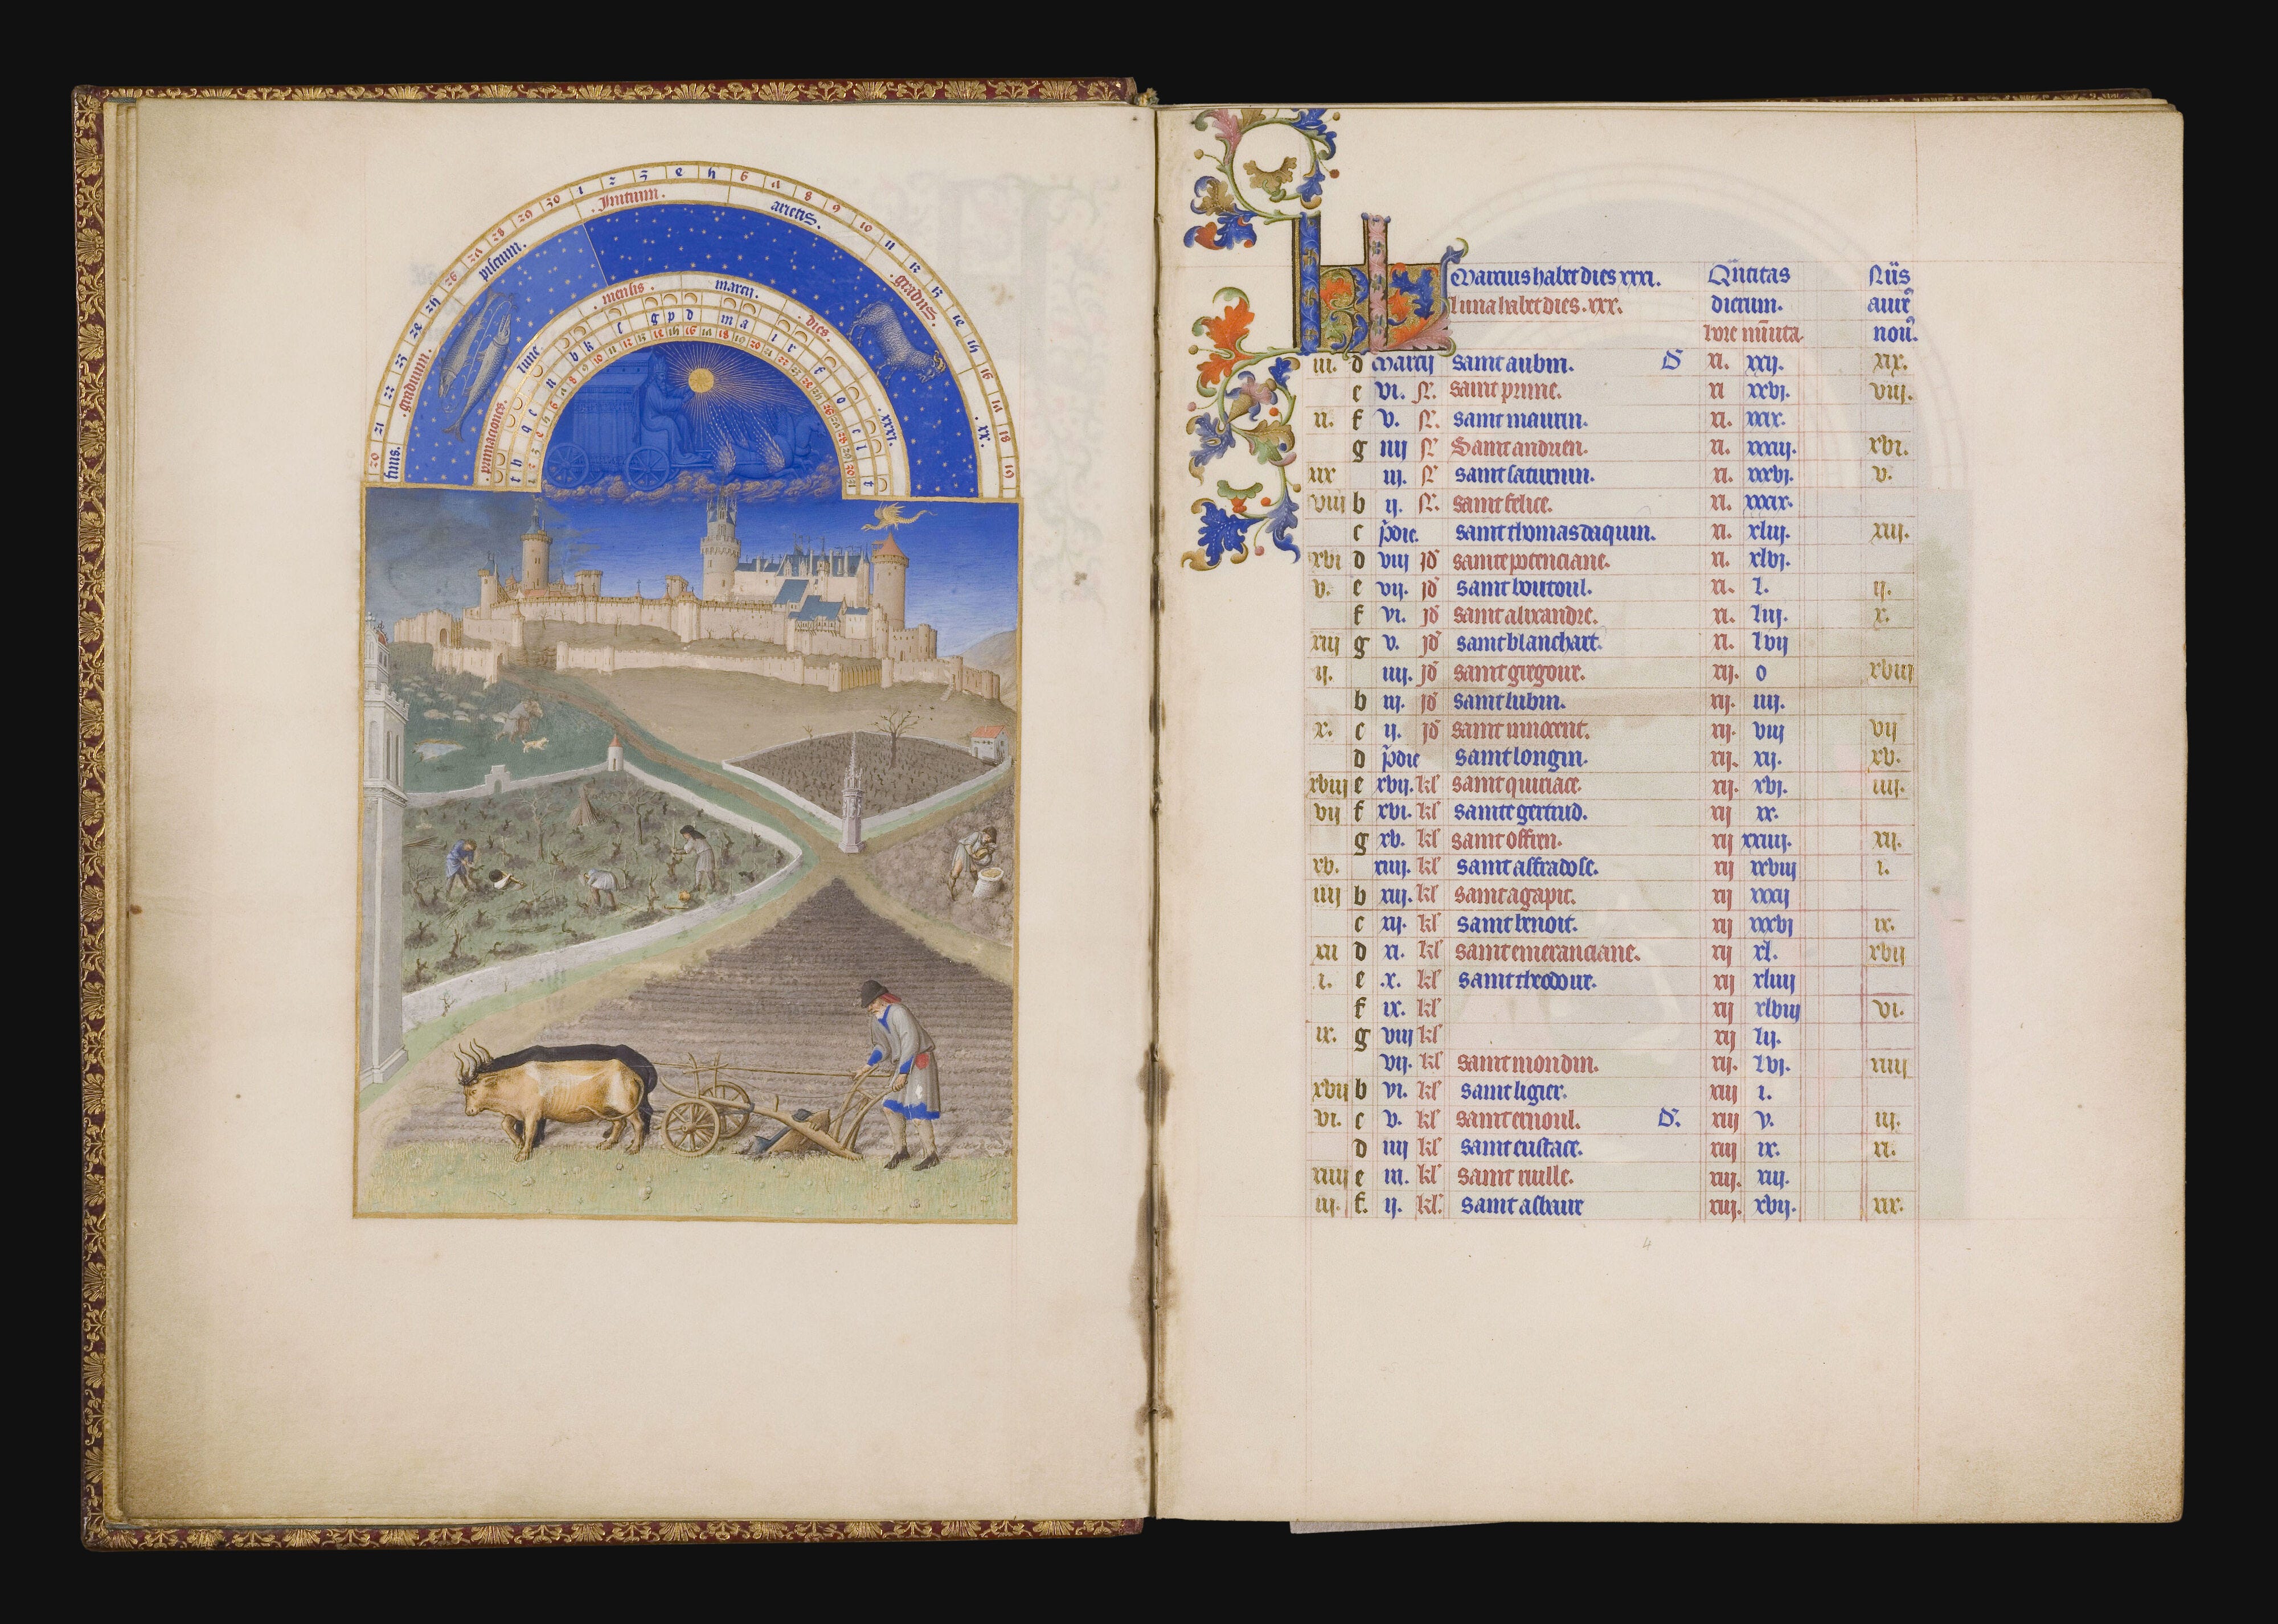 Initium. arietis. gradus. xx.
piscium. graduum. finis.
primaciones lune mensis marcij. dies. xxxi.
Marcius habet dies xxxi. Qũtitas Nũs
luna habet dies. xxx. dierum. aurẽ
hore minuta. nou᷒.
iii. d Marcij saint aubin. D xi. xxij. xix.
e vi. N. saint prime. xi xxvj. viij.
xi. f v. N. saint maurin. xi. xxix.
g iiij N Saint andrien. xi. xxxiij. xvi.
xix iij. N saint saturnin. xi. xxxvj. v.
viij b ij. N. saint felice. xi. xxxix.
c p̃die. saint thomas daquin. xi. xliij. xiij.
xvi d viij id᷒ sainte potenciane. xi. xlvj.
v. e vij. id᷒ saint boutoul. xi. l. ij.
f vi. id᷒ saint alixandre. xi. liij. x.
xiij g v. id᷒ saint blanchart. xi. lvij
ij. iiij. id᷒ saint girgoire. xij. o xviij
b iij. id᷒ saint lubin. xij. iiij.
x. c ij. id᷒ saint innocent. xij. viij vij
d p̃die saint longin. xij. xij. xv.
xviij e xvij. kl᷒ saint quiriace. xij. xvj. iiij.
vij f xvi. kl᷒ sainte gertrud. xij xx.
g xv. kl᷒ saint offrien. xij xxiiij. xij.
xv. xiiij. kl᷒ saint affradose. xij xxviij i.
iiij b xiij. kl᷒ saint agapit. xij xxxij
c xij. kl᷒ saint benoit. xij xxxvj ix.
xii d xi. kl᷒ saint emeranciane. xij xl. xvij
i. e .x. kl᷒ saint theodoure. xij xliiij
f ix. kl᷒ xij xlviij vi.
ix. g viij kl᷒ xij lij.
vij. kl᷒ saint mondin. xij. lvj. xiiij
xvij b vi. kl᷒ saint ligier. xiij i.
vi. c v. kl᷒ saint ernoul. D. xiij v. iij.
d iiij kl᷒ saint eustace. xiij ix. xi.
xiiij e iii. kl᷒ saint rulle. xiij. xiij.
iij. f. ij. kl᷒. saint asbaur xiij. xvij. xix.
4